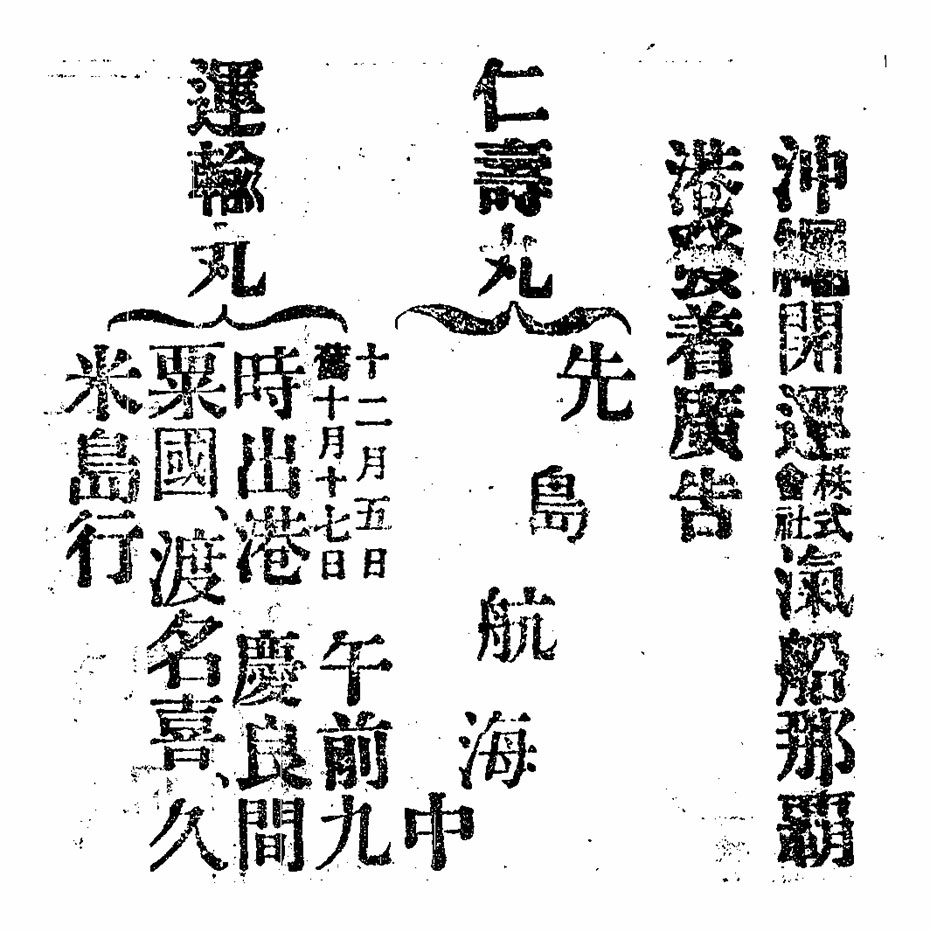 沖繩開運株式會社滊船那覇
港發着廣告
仁壽丸
先島航海中
運輸丸
十二月五日
舊十月十七日
午前九
時出港 慶良間
粟國、渡名喜、久
米島行